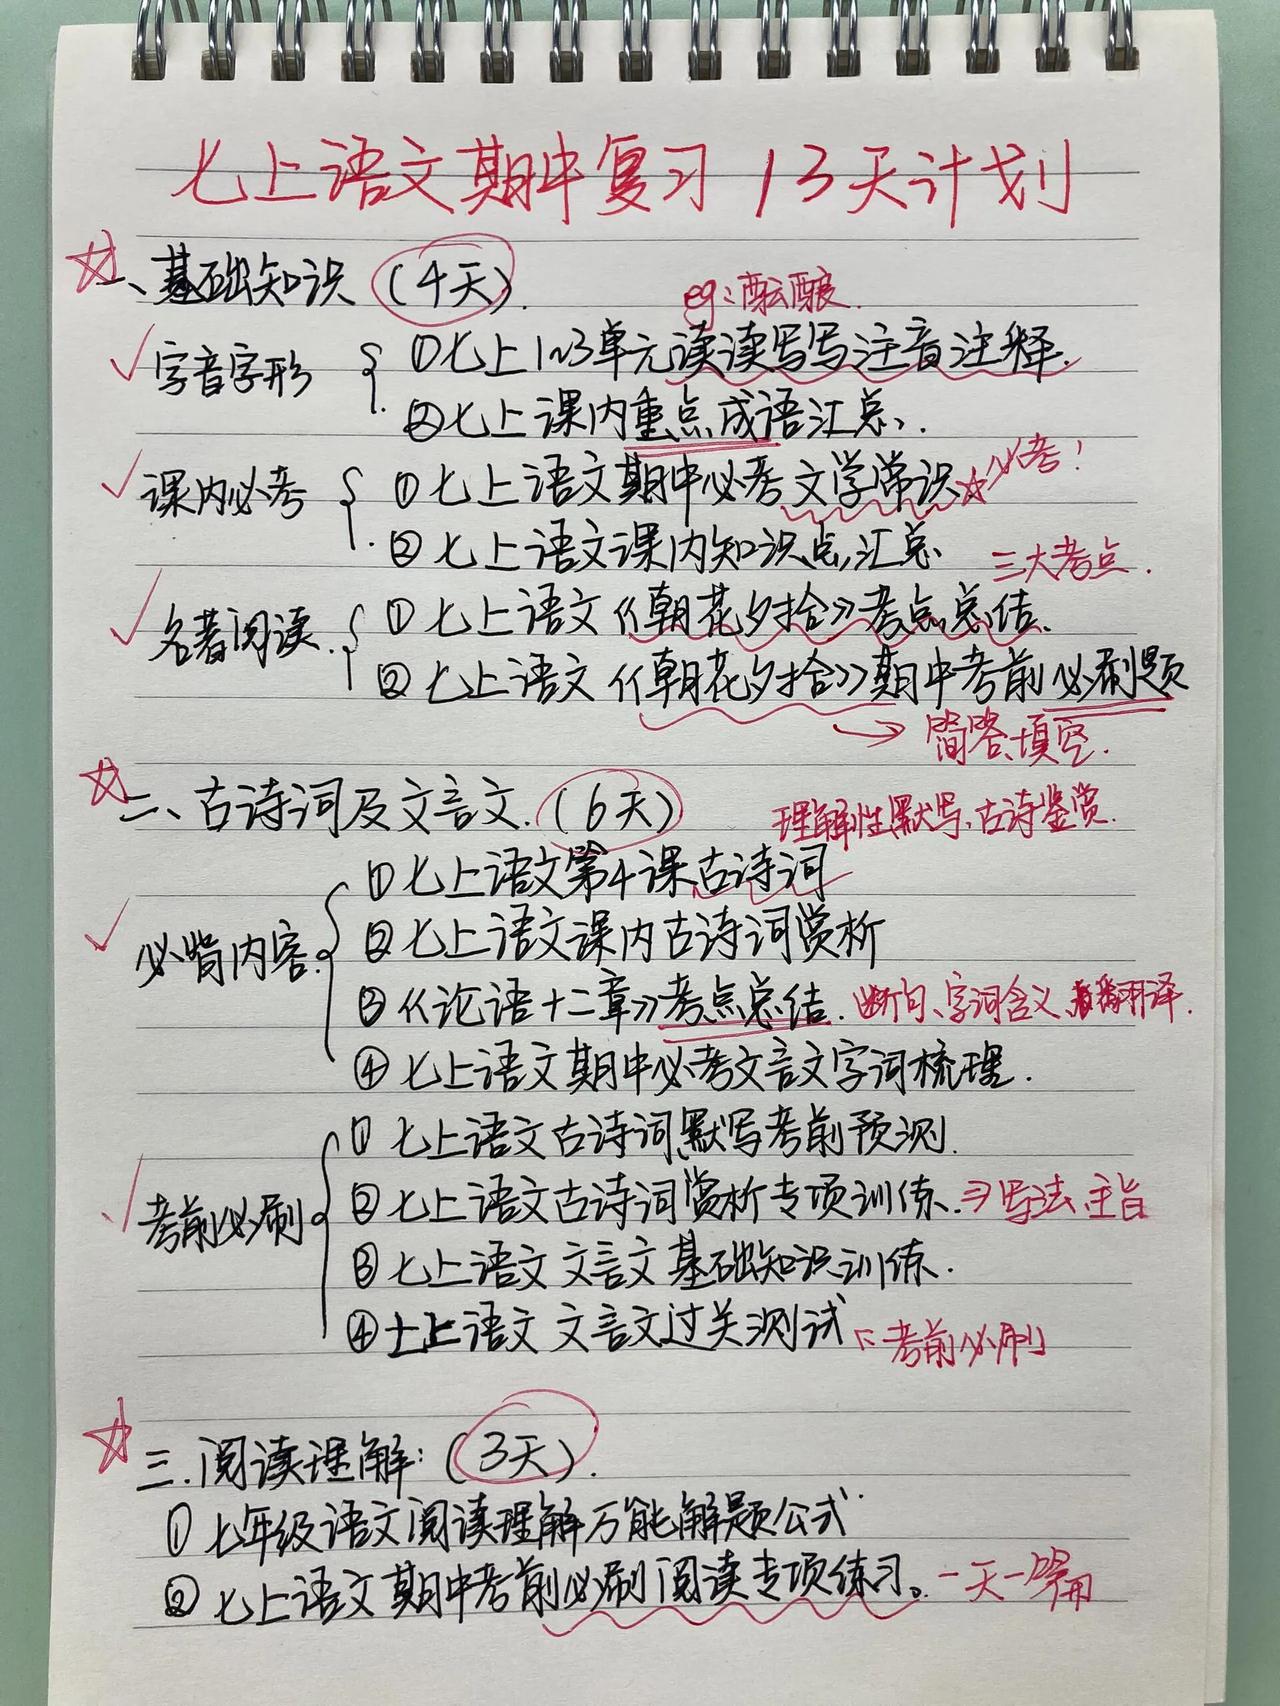 七上语文期中复习 13天计划
一、基础知识(4天).
eg:酝酿.
字音字形
①七上1~3单元读读写写注音注释.
②七上课内重点成语汇总.
课内必考
①七上语文期中必考文学常识 必考!
②七上语文课内知识点汇总.
三大考点.
名著阅读.
①七上语文《朝花夕拾》考点总结.
②七上语文《朝花夕拾》期中考前必刷题
→简答、填空.
二、古诗词及文言文.(6天)
理解性默写、古诗鉴赏.
必背内容.
①七上语文第4课古诗词
②七上语文课内古诗词赏析
③《论语十二章》考点总结. 断句、字词含义、翻译.
④七上语文期中必考文言文字词梳理.
考前必刷
①七上语文古诗词默写考前预测.
②七上语文古诗词赏析专项训练. ⇒写法、主旨
③七上语文 文言文基础知识训练.
④七上语文 文言文过关测试
考前必刷
三.阅读理解:(3天).
①七年级语文阅读理解万能解题公式.
②七上语文期中考前必刷阅读专项练习。一天一